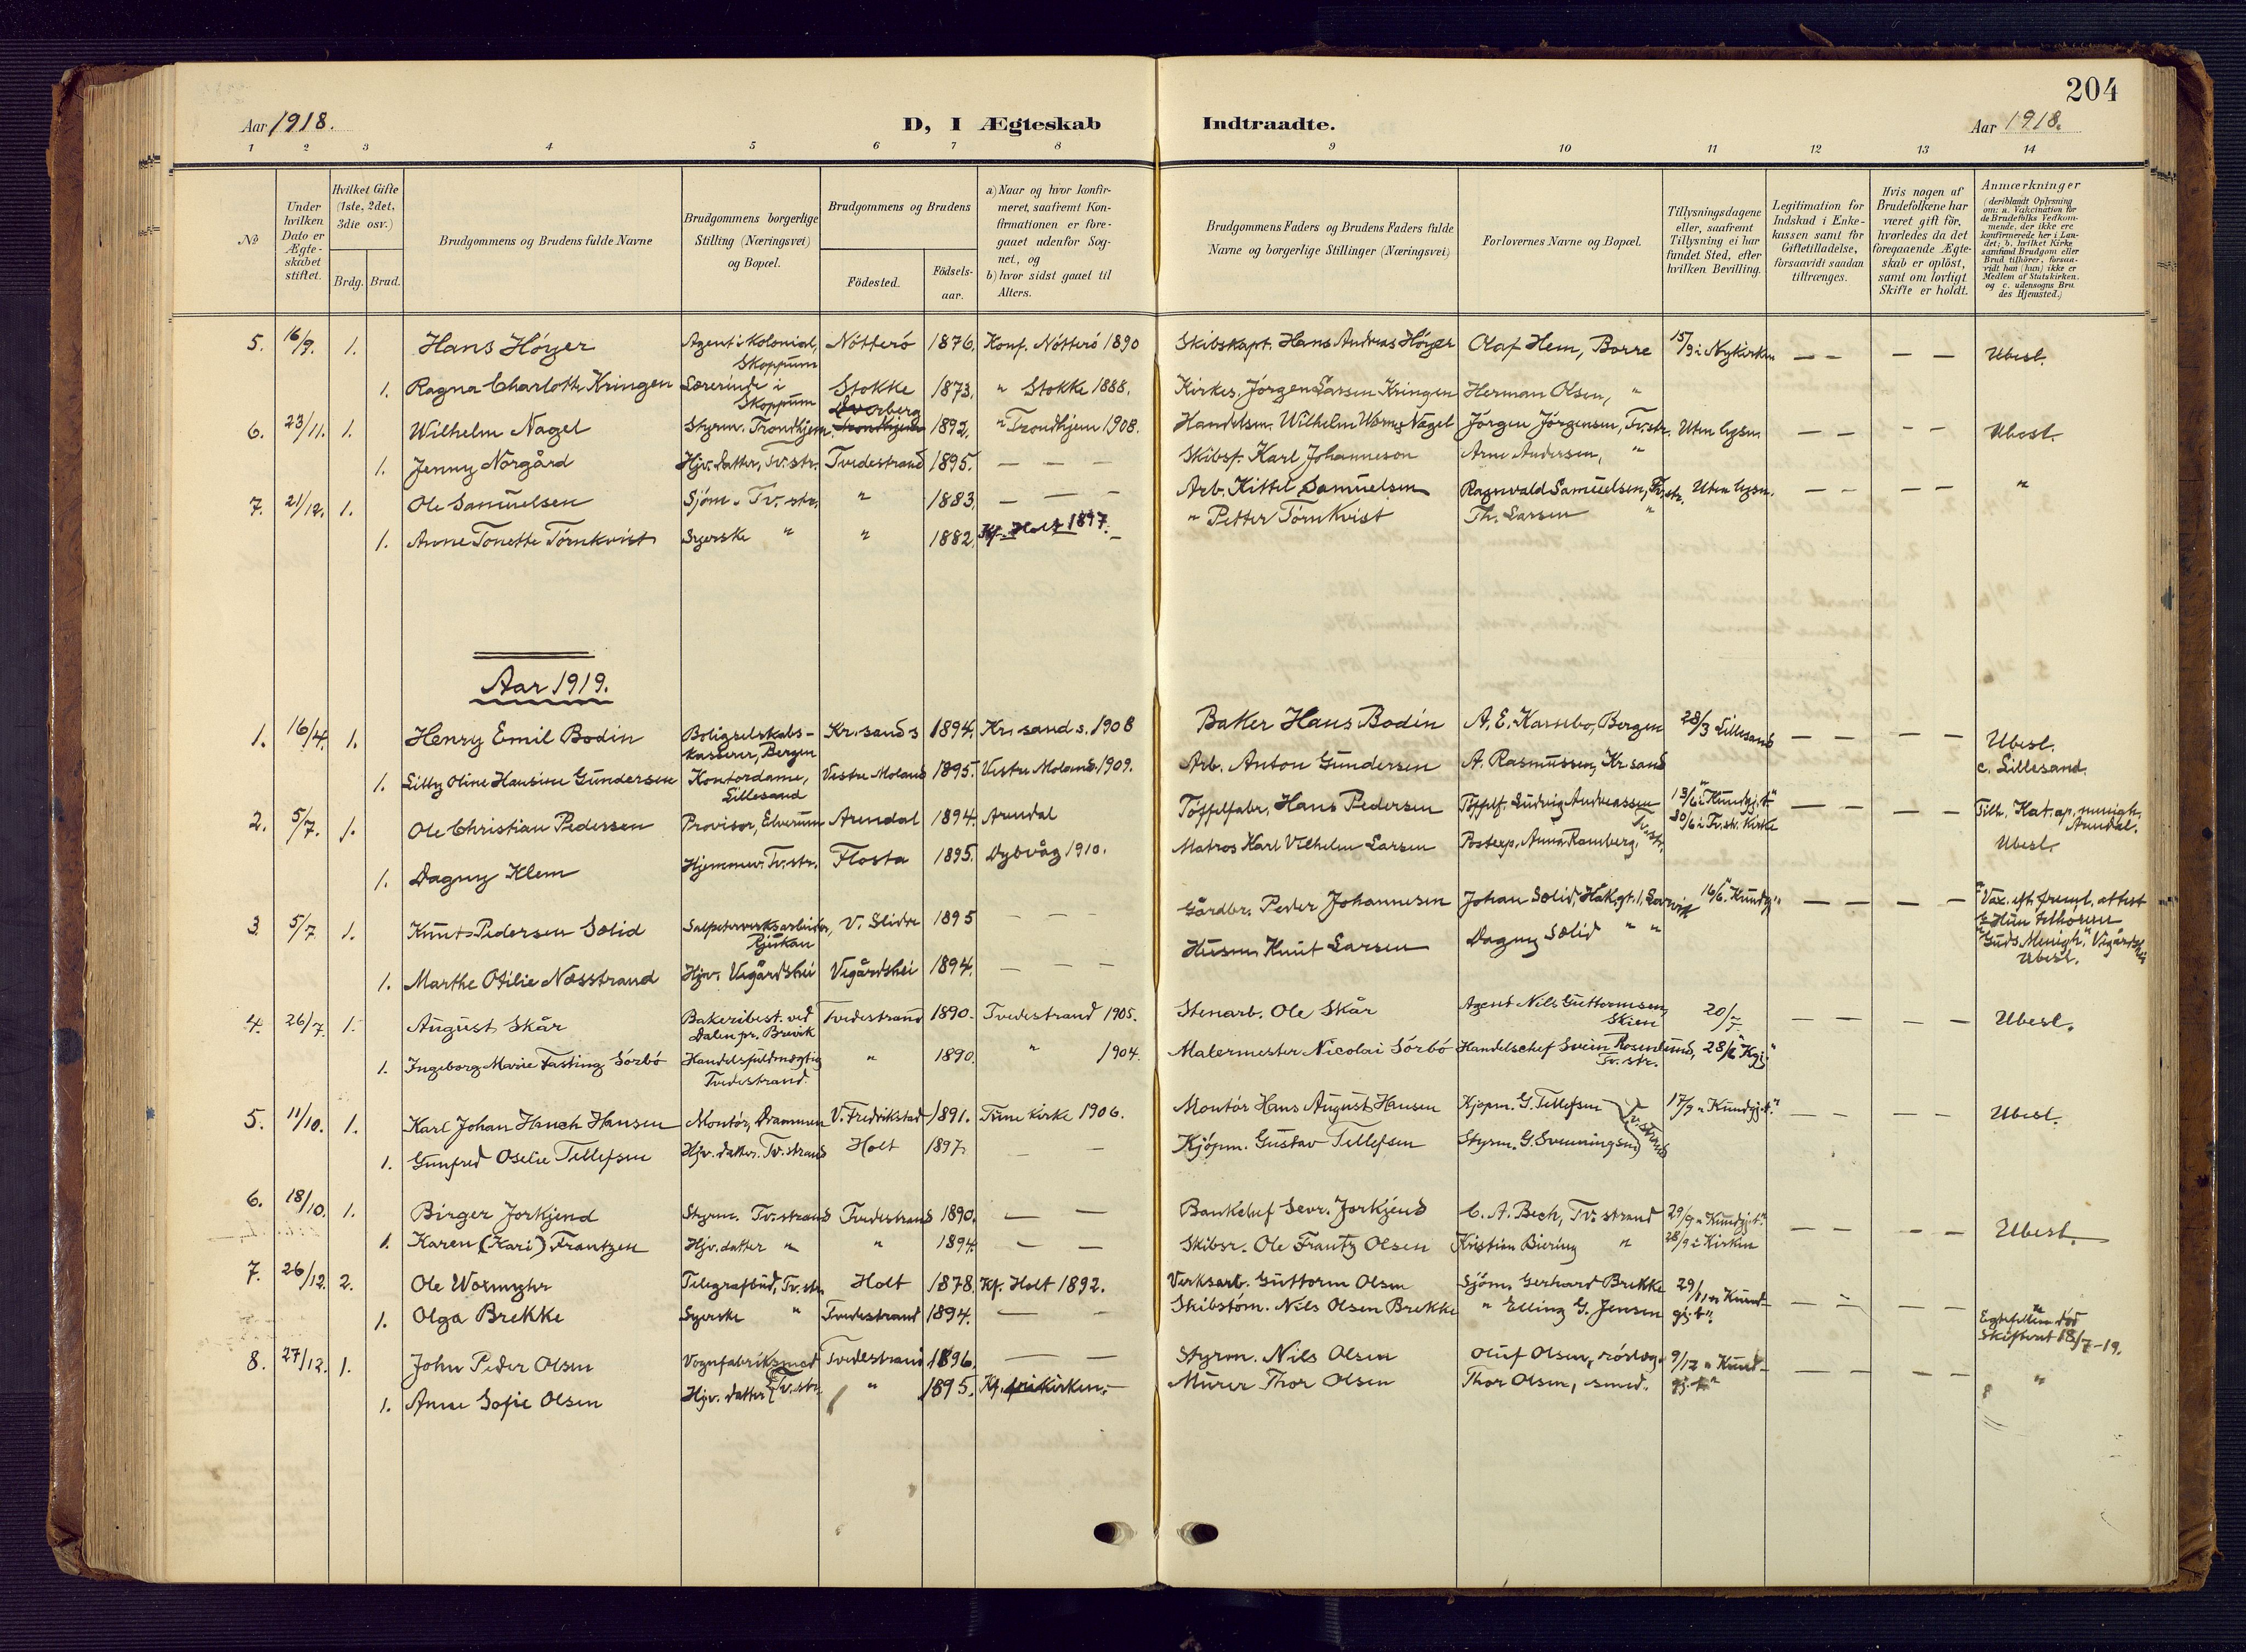 204
Aar 1918. D, I Ægteskab Indtraadte. Aar 1918.
1 2 3 4 5 6 7 8 9 10 11 12 13 14
No
Under hvilken Dato er Ægteskabet stiftet.
Hvilket Gifte (1ste, 2det, 3die osv.)
Brdg. Brud.
Brudgommens og Brudens fulde Navne
Brudgommens borgerlige Stilling (Næringsvei) og Bopæl.
Brudgommens og Brudens
Fødested. Fødselsaar.
a) Naar og hvor konfirmeret, saafremt Konfirmationen er foregaaet udenfor Sognet, og
b) hvor sidst gaaet til Alters.
Brudgommens Faders og Brudens Faders fulde Navne og borgerlige Stillinger (Næringsvei)
Forlovernes Navne og Bopæl.
Tillysningsdagene eller, saafremt Tillysning ei har fundet Sted, efter hvilken Bevilling.
Legitimation for Indskud i Enkekassen samt for Giftetilladelse, forsaavidt saadan tiltrænges.
Hvis nogen af Brudefolkene har været gift før, hvorledes da det foregaaende Ægteskab er opløst, samt om lovligt Skifte er holdt.
Anmærkninger (deriblandt Oplysning om: a. Vakcination for de Brudefolks Vedkommende, der ikke ere konfirmerede her i Landet; b. hvilket Kirkesamfund Brudgom eller Brud tilhører, forsaavidt han (hun) ikke er Medlem af Statskirken. og c. udensogns Brudes Hjemsted.)
5. 16/9. 1. Hans Höyer Agent i Kolonial, Skoppum Nötterö 1876. Konf. Nötterö 1890 Skibskapt. Hans Andreas Höyer Olaf Hem, Borre 15/9 i Nykirken — — — — Ubesl.
1. Ragna Charlotte Kringen Lærerinde i Skoppum Stokke 1873. " Stokke 1888. Kirkes. Jörgen Larsen Kringen Herman Olsen, "
6. 23/11. 1. Wilhelm Nagel Styrm. Trondhjem. Trondhjem 1892. " Trondhjem 1908. Handelsm. Wilhelm Nagel Jörgen Jörgensen, Tv.str. Uten lysn. — — — — Ubesl.
1. Jenny Norgård Hjv. datter, Tv.str. Tvedestrand 1895. — — — Skibsf. Karl Johanneson Arne Andersen, "
7. 21/12. 1. Ole Samuelsen Sjöm. Tv.str. " 1883. — — — Arb. Kittel Samuelsen Ragnvald Samuelsen, Tv.str. Uten lysn. — — — — "
1. Anne Tonette Törnkvist Syerske " " 1882. Kf. Holt 1897. " Petter Törnkvist Th. Larsen "
Aar 1919.
1. 16/4. 1. Henry Emil Bodin Boligselskabs-kasserer, Bergen Kr.sand s 1894. Kr.sand s. 1908 Baker Hans Bodin A. E. Karsebo, Bergen 28/3 Lillesand — — — — Ubesl.
1. Lilly Oline Hansine Gundersen Kontordame, Lillesand Vestre Moland 1895. Vestre Moland. 1909. Arb. Anton Gundersen A. Rasmussen, Kr.sand c. Lillesand.
2. 5/7. 1. Ole Christian Pedersen Provisor, Elverum Arendal 1894. Arendal Töffelfabr. Hans Pedersen Töffelf. Ludvig Andreassen 13/6 i "Kundgj.t." — — — — Tilh. Kat. ap. menigh. Arendal.
1. Dagny Klem Hjemmev. Tv.str. Flosta 1895. Dybvåg 1910. Matros Karl Vilhelm Larsen Postexp. Anna Ramberg, Tv.str. 30/6 i Tv.str. Kirke Ubesl.
3. 5/7 1. Knut Pedersen Solid Salpeterverksarbeider, Rjukan V. Slidre 1895 — — — Gårdbr. Peder Johannesen Johan Solid, Hak.gt. 1, Larvik 16/6. "Kundgj." — — — — Vax. eft. freml. attest
1. Marthe Otilie Næsstrand Hjv. Vegårdshei Vegårdshei 1894. — — — Husm. Knut Larsen Dagny Solid " " Hun tilhörer "Guds Menigh." Vegårdshei Ubesl.
4. 26/7. 1. August Skår Bakeribest. ved Dalen pr. Brevik Tvedestrand 1890. Tvedestrand 1905. Stenarb. Ole Skår Agent Nils Guttormsen, Skien 20/7. — — — — Ubesl.
1. Ingeborg Marie Fasting Sörbö Handelsfuldmægtig Tvedestrand. " 1890. " 1904. Malermester Nicolai Sörbö Handelschef Svein Rosenlund, Tv.str. 28/6 "Kgj."
5. 11/10. 1. Karl Johan Hauch Hansen Montör, Drammen V. Fredrikstad 1891. Tune kirke 1906. Montör Hans August Hansen Kjöpm. G. Tellefsen Tv.strand 17/9 "Kundgj.t." — — — — Ubesl.
1. Gunfred Oselie Tellefsen Hjv. datter. Tv.strand Holt 1897. — — Kjöpm. Gustav Tellefsen Styrm. G. Svenningsen
6. 18/10. 1. Birger Jorkjend Styrm. Tv.strand Tvedestrand 1890. — — Bankchef Sevr. Jorkjend C. A. Bech, Tv.strand 29/9 "Kundgj.t." — — — — Ubesl.
1. Karen (Kari) Frantzen Hjv. datter " " 1894. — — Skibsr. Ole Frantz Olsen Kristian Biering " 28/9 i Kirken
7. 26/12. 2. Ole Woxmyhr Telegrafbud, Tv.str. Holt 1878. Kf. Holt 1892. Verksarb. Guttorm Olsen Sjöm. Gerhard Brekke 29/11 "Kundgj.t." — — — —
1. Olga Brekke Syerske " Tvedestrand 1894. — — Skibstöm. Nils Olsen Brekke " Elling G. Jensen Egtefellen död Skifteat. 18/7-19.
8. 27/12. 1. John Peder Olsen Vognfabriksmed Tv.str. Tvedestrand 1896. — — Styrm. Nils Olsen Oluf Olsen, 9/12 "Kundgj.t." — — — — "
1. Anne Sofie Olsen Hjv. datter " 1895. Kf. frikirken. — Murer Thor Olsen Thor Olsen, smed.